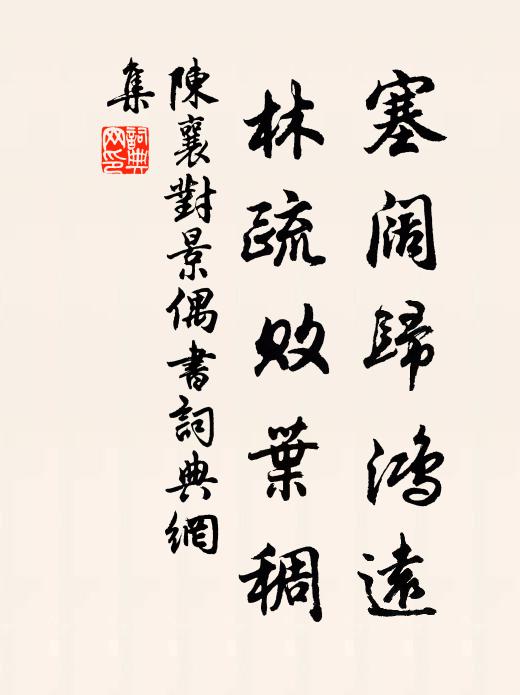 塞阔歸鴻遠
林疏敗葉稠
陳襄對景偶書詞典網
集
詞典
网印